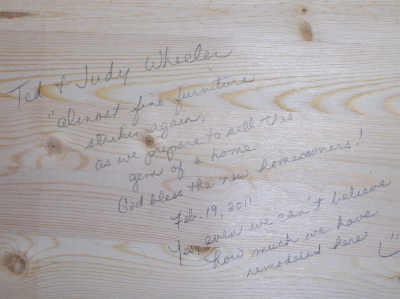 Ted & Judy Wheeler
"almost fine furniture"
strikes again,
as we prepare to sell this
gem of a home
God bless the new homeowners!
Feb. 19, 2011
Yes, even we can't believe
how much we have
remodeled here